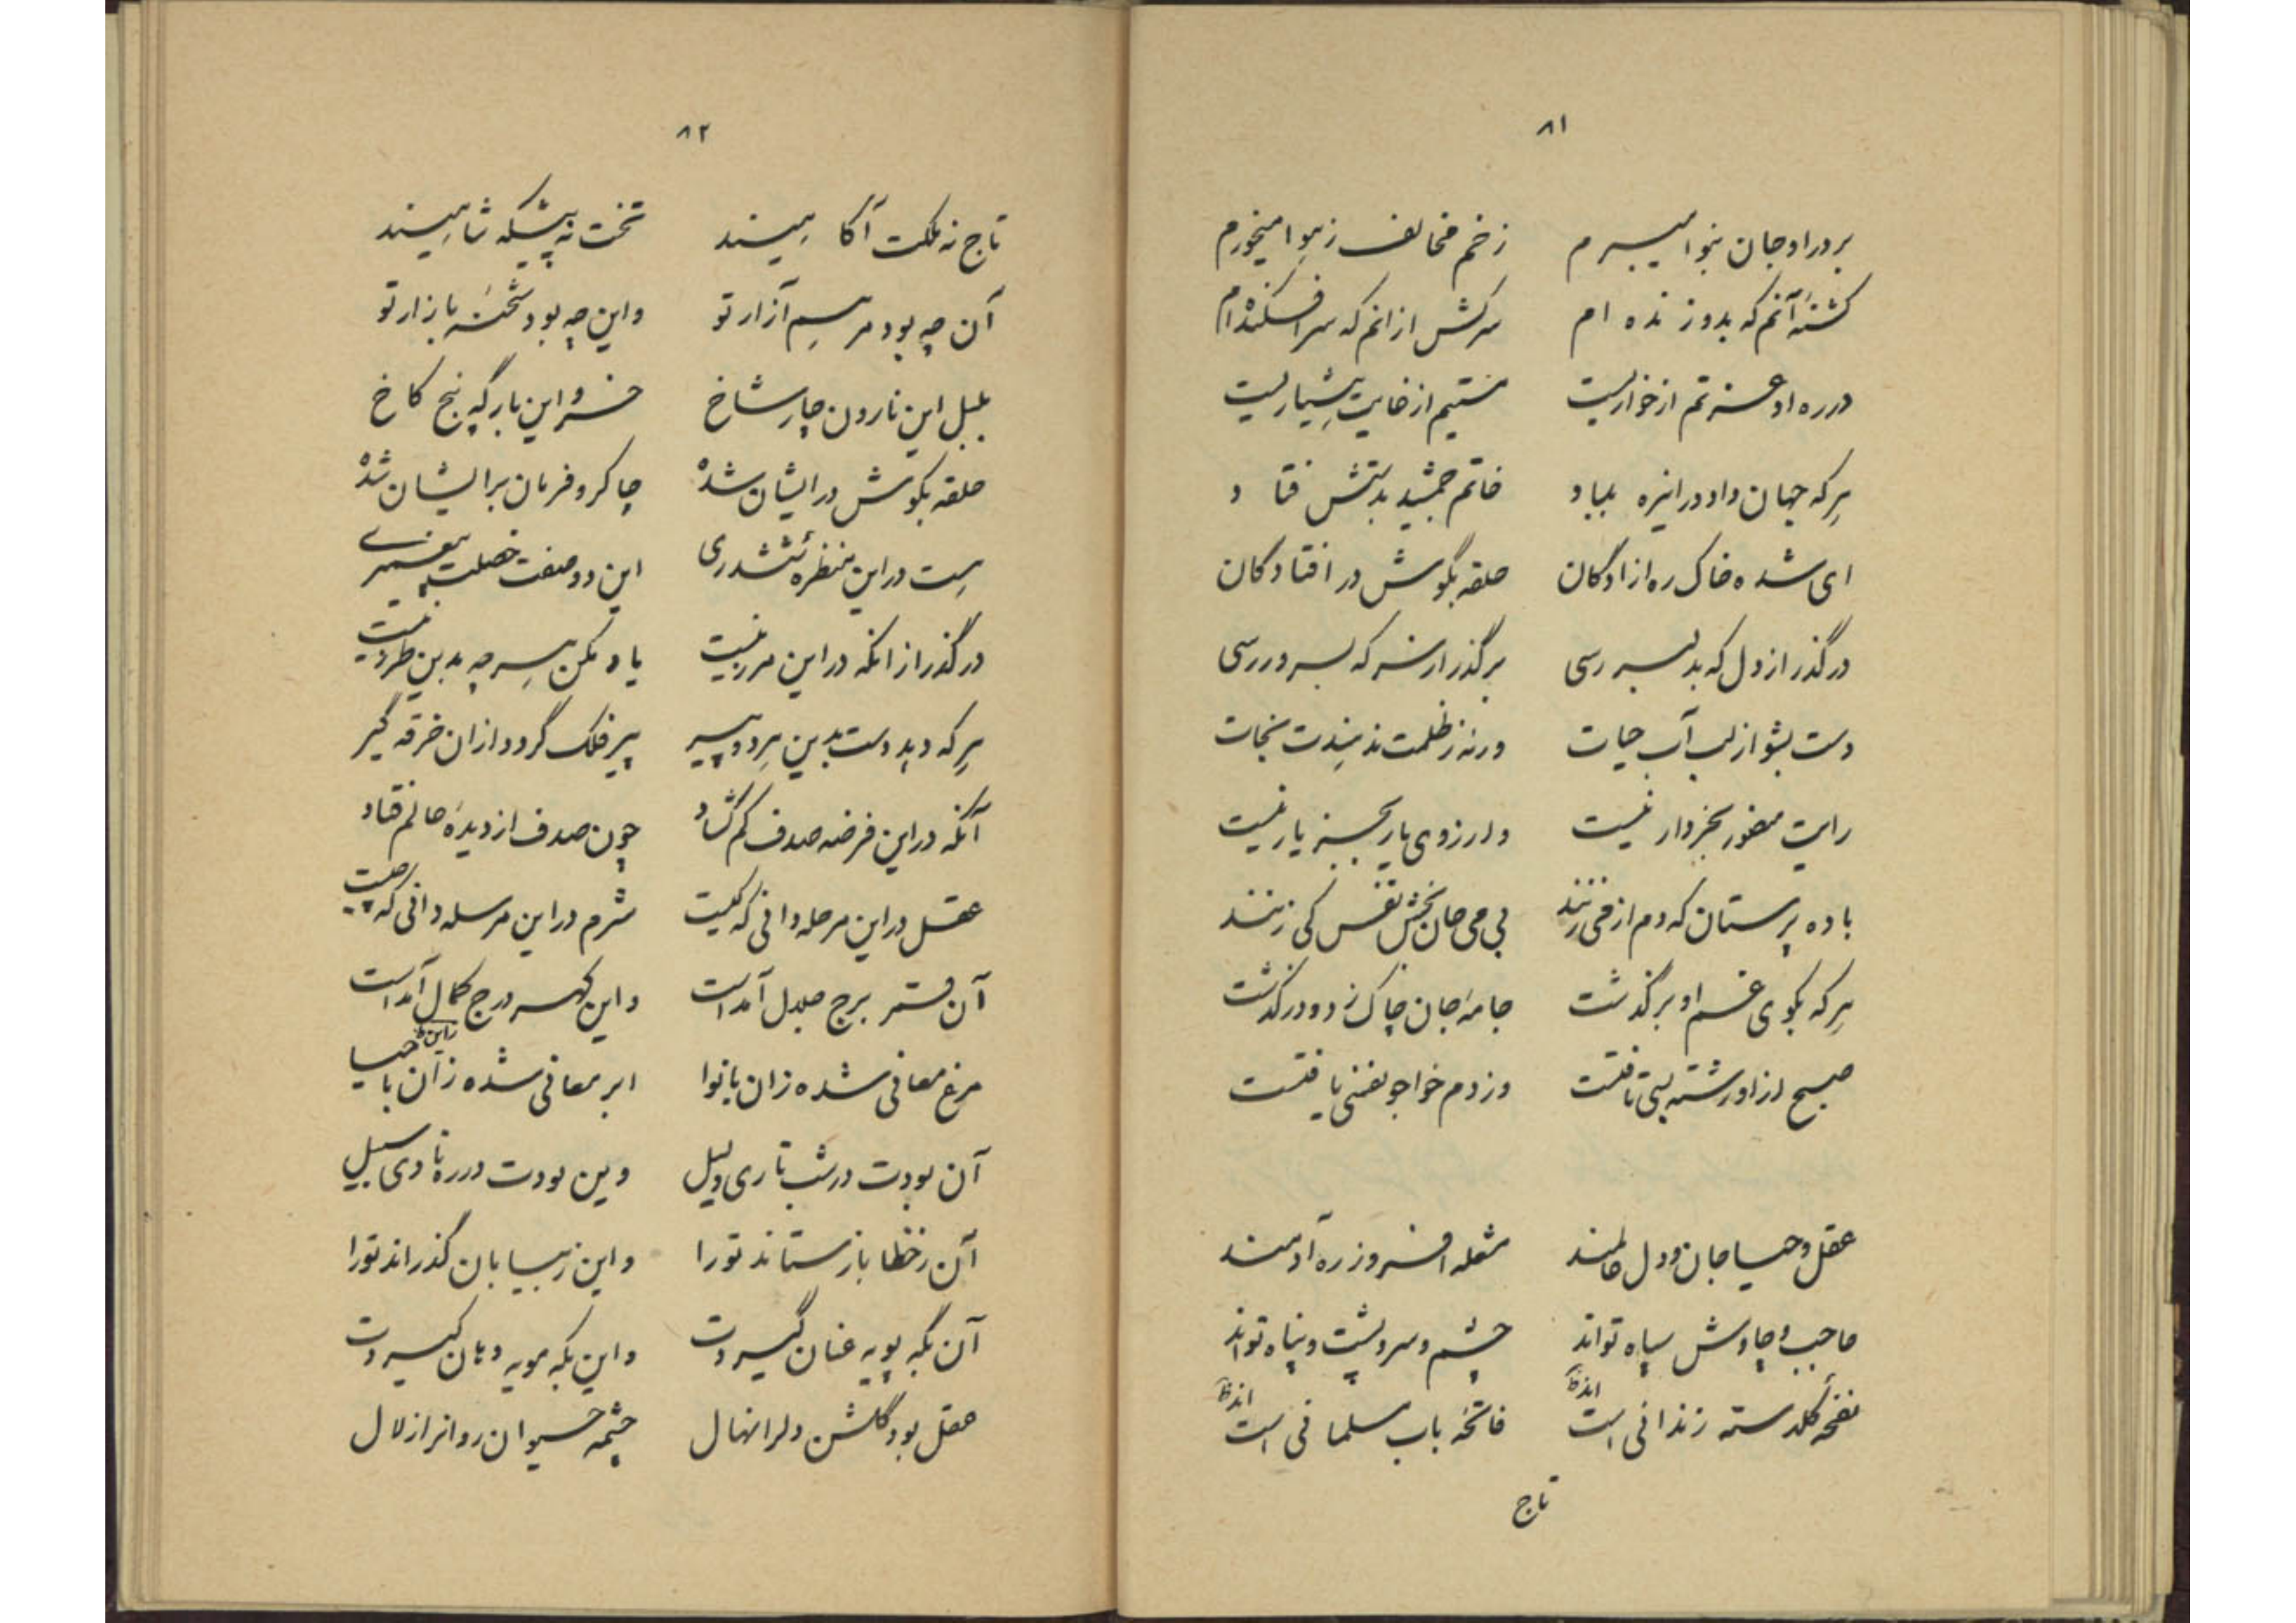 ۸۱
بر در او جان بنوا میبرم زخم مخالف ز هوا میخورم
کشتهٔ آنم که بدو زنده ام سرکش ازانم که سرافکنده ام
در ره او عزتم از خواریست مستیم از غایت هشیاریست
هر که جهان داد در اینره بباد خاتم جمشید بدستش فتاد
ای شده خاک ره ازادگان حلقه بگوش در افتادگان
در گذر از دل که بدلبر رسی بر گذر از سر که بسرور رسی
دست بشو از لب آب حیات ورنه ز ظلمت ندهندت نجات
رایت منصور بجز دار نیست دارزوی یار بجز یار نیست
باده پرستان که دم از می زنند بی می جان بخش نفس کی زنند
هر که بکوی غم او برگذشت جامهٔ جان چاک زد و درگذشت
صبح از او رشته تبی تافتست وز دم خواجو نفسی یافتست
عقل و حیا جان و دل عالمند مشعله افروز ره آدمند
حاجب و چاوش سپاه تواند چشم و سر و پشت و پناه تواند
اندظ اندظ
نفحهٔ گلدسته زندانی است فاتحهٔ باب مسلمانی است
تاج
۸۲
تاج نه ملکت آگاهیند تخت نه پیشگه شاهیند
آن چه بود مرهم آزار تو واین چه بود شحنهٔ بازار تو
بلبل این نارون چار شاخ خسرو این بارگه پنج کاخ
حلقه بگوش در ایشان شده چاکر و فرمان بر ایشان شده
هست در این منظرهٔ ششدری این دو صفت خصلت پیغمبری
در گذر از انکه در این مرد نیست یاد مکن هر چه بدین طرد نیست
هر که دهد دست بدین هر دو پیر پیر فلک گردد ازان خرقه گیر
آنکه در این فرضه صدف کم گشاد چون صدف از دیدهٔ عالم فتاد
عقل در این مرحله دانی که کیست شرم در این مرسله دانی که چیست
آن قمر برج جلال آمداست واین گهر درج کمال آمداست
زاین ظ
مرغ معانی شده زان بانوا ابر معانی شده زان با حیا
آن بودت در شب تاری دلیل وین بودت در ره نادی سبیل
آن ز خطا باز ستاند تو را واین ز بیابان گذراند تو را
آن بگه پویه عنان گیردت واین بگه مویه دهان گیردت
عقل بود گلشن دلرا نهال چشمه حیوان روانرا زلال